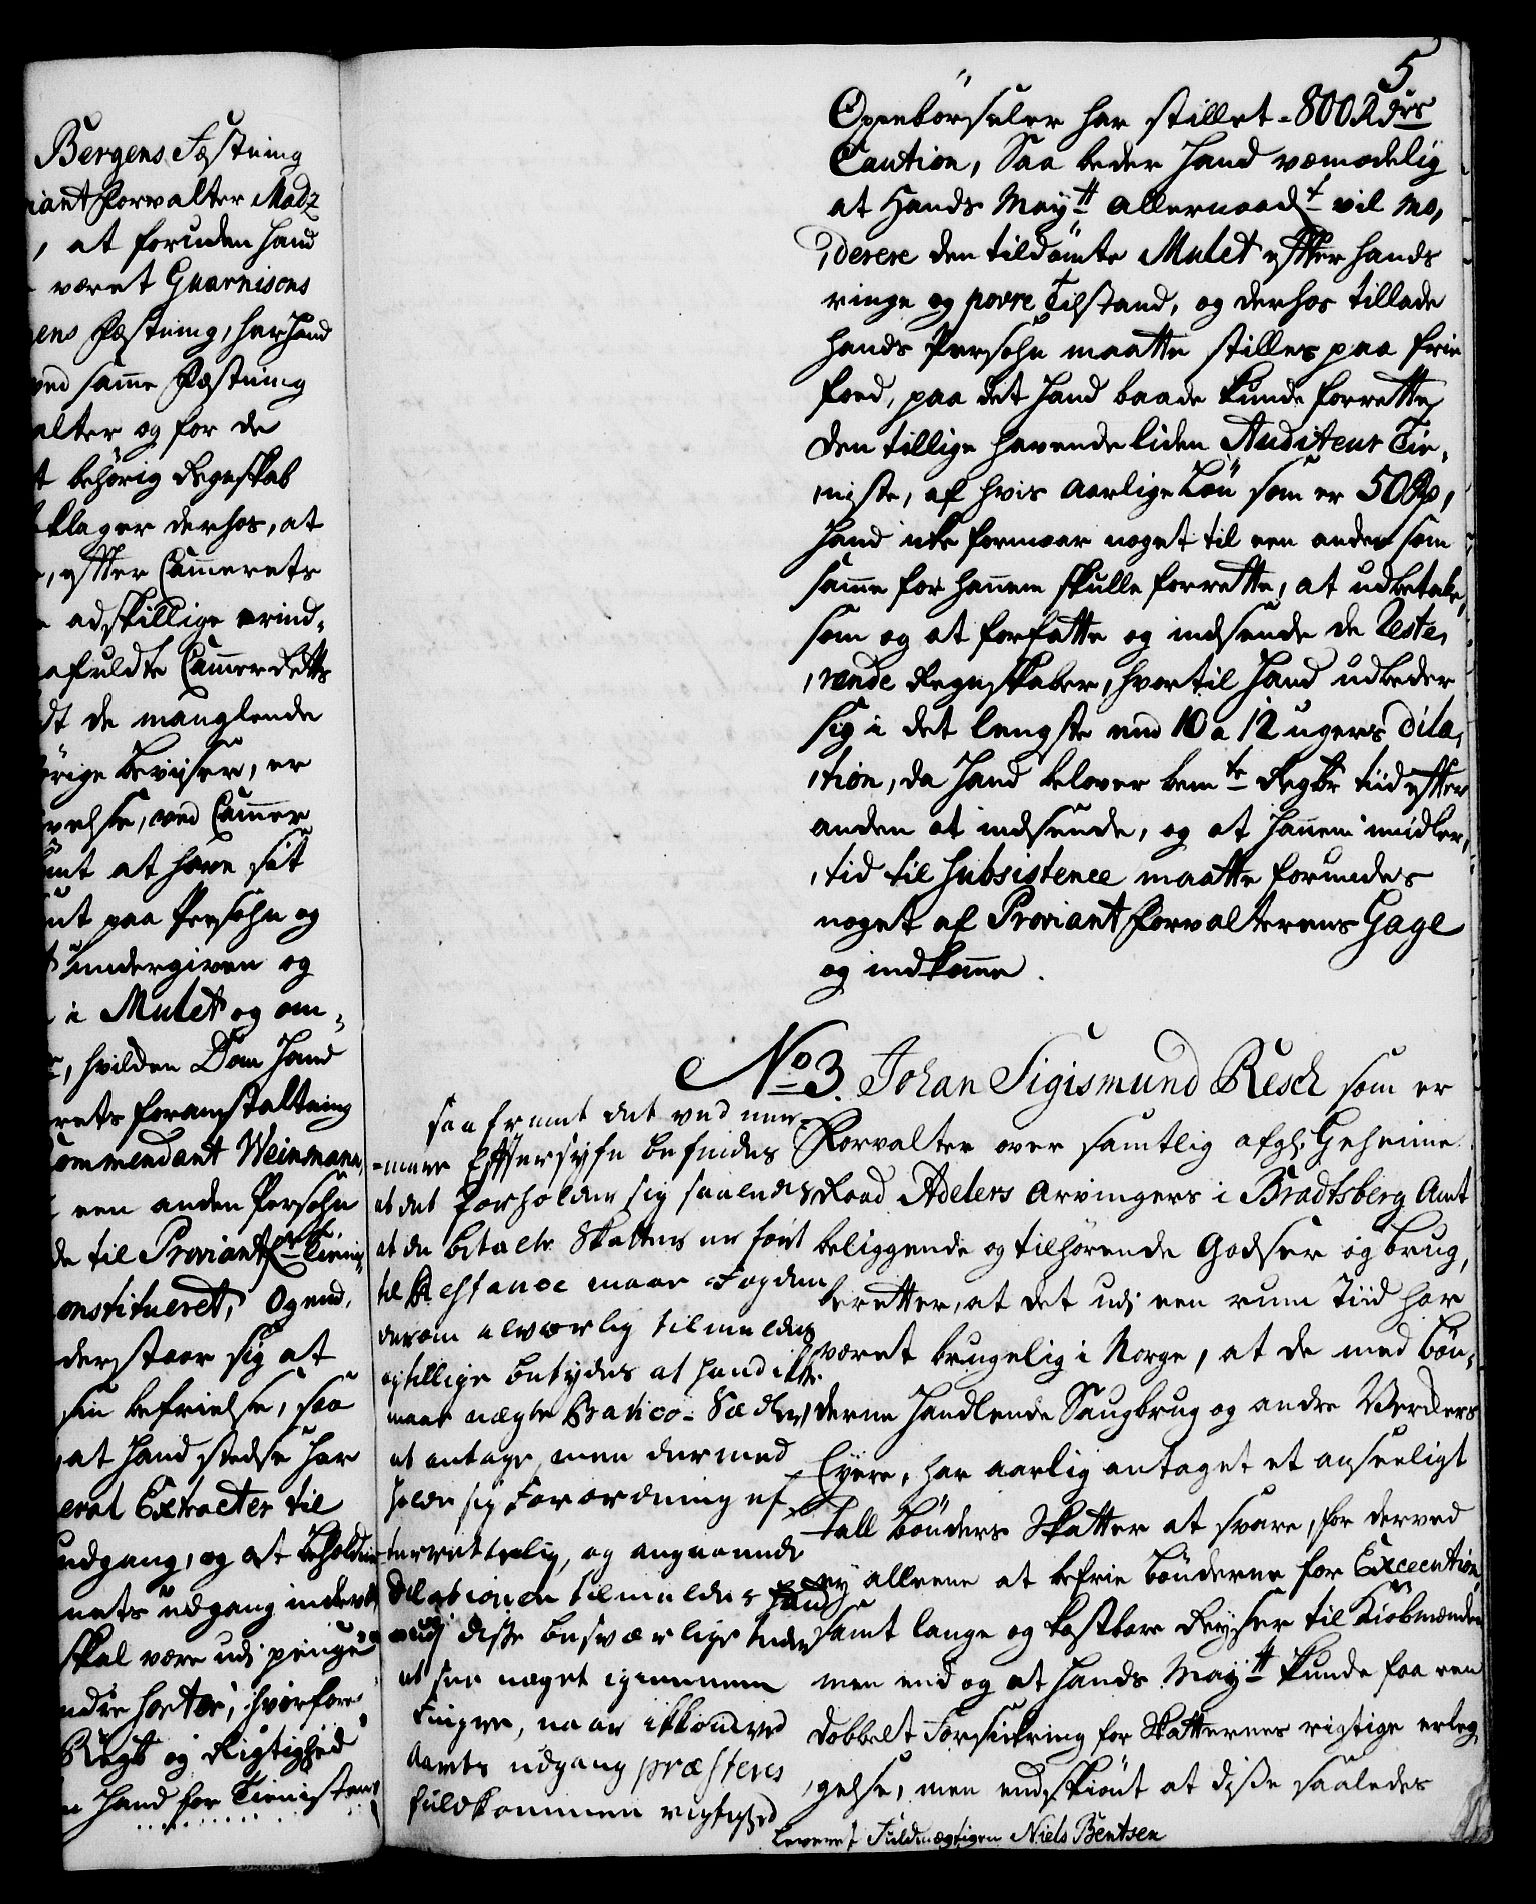 Bergens Fæstning
iant Forvalter Madz
, at foruden hand
været Guarnisons
ens Fæstning, har hand
ved samme Fæstning
alter og for de
t behørig Regnskab
klager derhos, at
, efter Cammerets
adskillige erind,
afuldte Cammer Retts
dt de manglende
örige beviiser, er
velse, ved Cammer
mt at have sit
ut paa Persohn og
undergiven og
i Mulct og om,
, hvilken Dom hand
rets foranstaltning
ommendant Weinmann,
een anden Persohn
de til Proviant Forv. Tienis
onstitueret, Og end,
derstaar sig at
sin befrielse, saa
at hand stedse har
eral Extracter til
udgang, og at beholdn
nets udgang indev
skal være udj penge
ndre sorter, hvorfore
Regb og Rigtighed
hand for Tienisten
5
Openbörseler har stillet 800 Rdrs
Caution, Saa beder hand vemodelig
at Hands Maytt allernaadt vil mo,
,derere den tildömte Mulct efter hands
ringe og povre Tilstand, og derhos tillade
hands Persohn maatte stilles paa frie
foed, paa det hand baade kunde forrette
den tillige havende liden Auditeur Tie,
,niste, af hvis aarlige Lön som er 50 Rd,
hand icke formaar noget til een anden som
samme for hannem skulle forrette, at udbetale,
som og at forfatte og indsende de Reste,
,rende Regnskaber, hvortil hand udbeder
sig i det lengste end 10 a 12 ugers dila,
,tion, da hand belover bemte Regbr tiid efter
anden at indsende, og at hannem imidler,
,tid til Subsistence maatte forundes
noget af Proviant Forvalterens Gage
og indkomme.
No 3. Johan Sigismund Resch som er
Forvalter over samtlig afg. Geheime
Raad Adelers Arvingers i Bradtsberg Amt
beliggende og tilhørende Godser og brug,
beretter, at det udj een rum Tiid har
været brugelig i Norge, at de med bön,
derne handlende Saugbrug og andre Verckers
Eyere, har aarlig antaget et anseeligt
Tall bönders Skatter at svare, for derved
ey alleene at befrie bönderne for Execution,
samt lange og kostbare Reyser til Kiöbmænden
men end og at hands Maytt kunde faa een
dobbelt Forsickring for Skatternes rigtige erleg
,gelse, men endskiönt at disse saaledes
saafremt det ved nær,
mere Eftersyn befindes
at det forholder sig saaledes
at de betalte Skatter er fört
til Restance maae Fogden
derom alvorlig tilmeldes
og tillige betydes at hand ikke
maae nægte Banco-Sedler
at antage, men dermed
holde sig Forordning ef
terrettelig, og angaaende
Dilationen tilmeldes hand
udj disse besværlige tider
at see noget igiennem
Fingre, naar ikkun ved
Aarets udgang præsteres
fuldkommen rigtighed
Leveret Fuldmægtigen Niels Bentsen